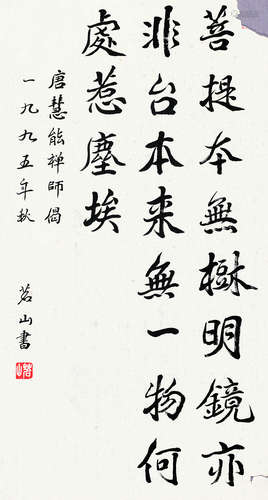 菩提本無樹明鏡亦
非台本来無一物何
處惹塵埃
唐慧能禅師偈
一九九五年秋
茗山書